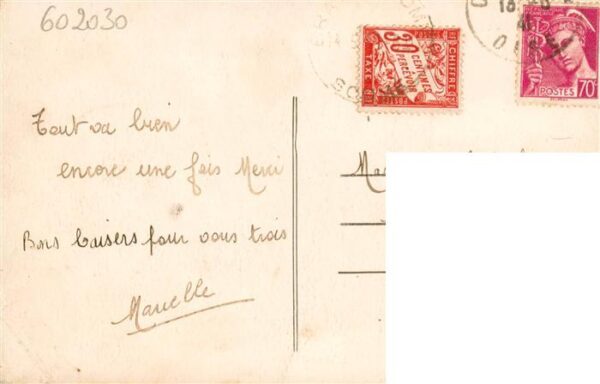 602030
Tout va bien
encore une fois Merci
Bons baisers pour vous trois
Marcelle
CHIFFRE
TAXE
30
CENTIMES
A PERCEVOIR
POSTES
70
18
OISE